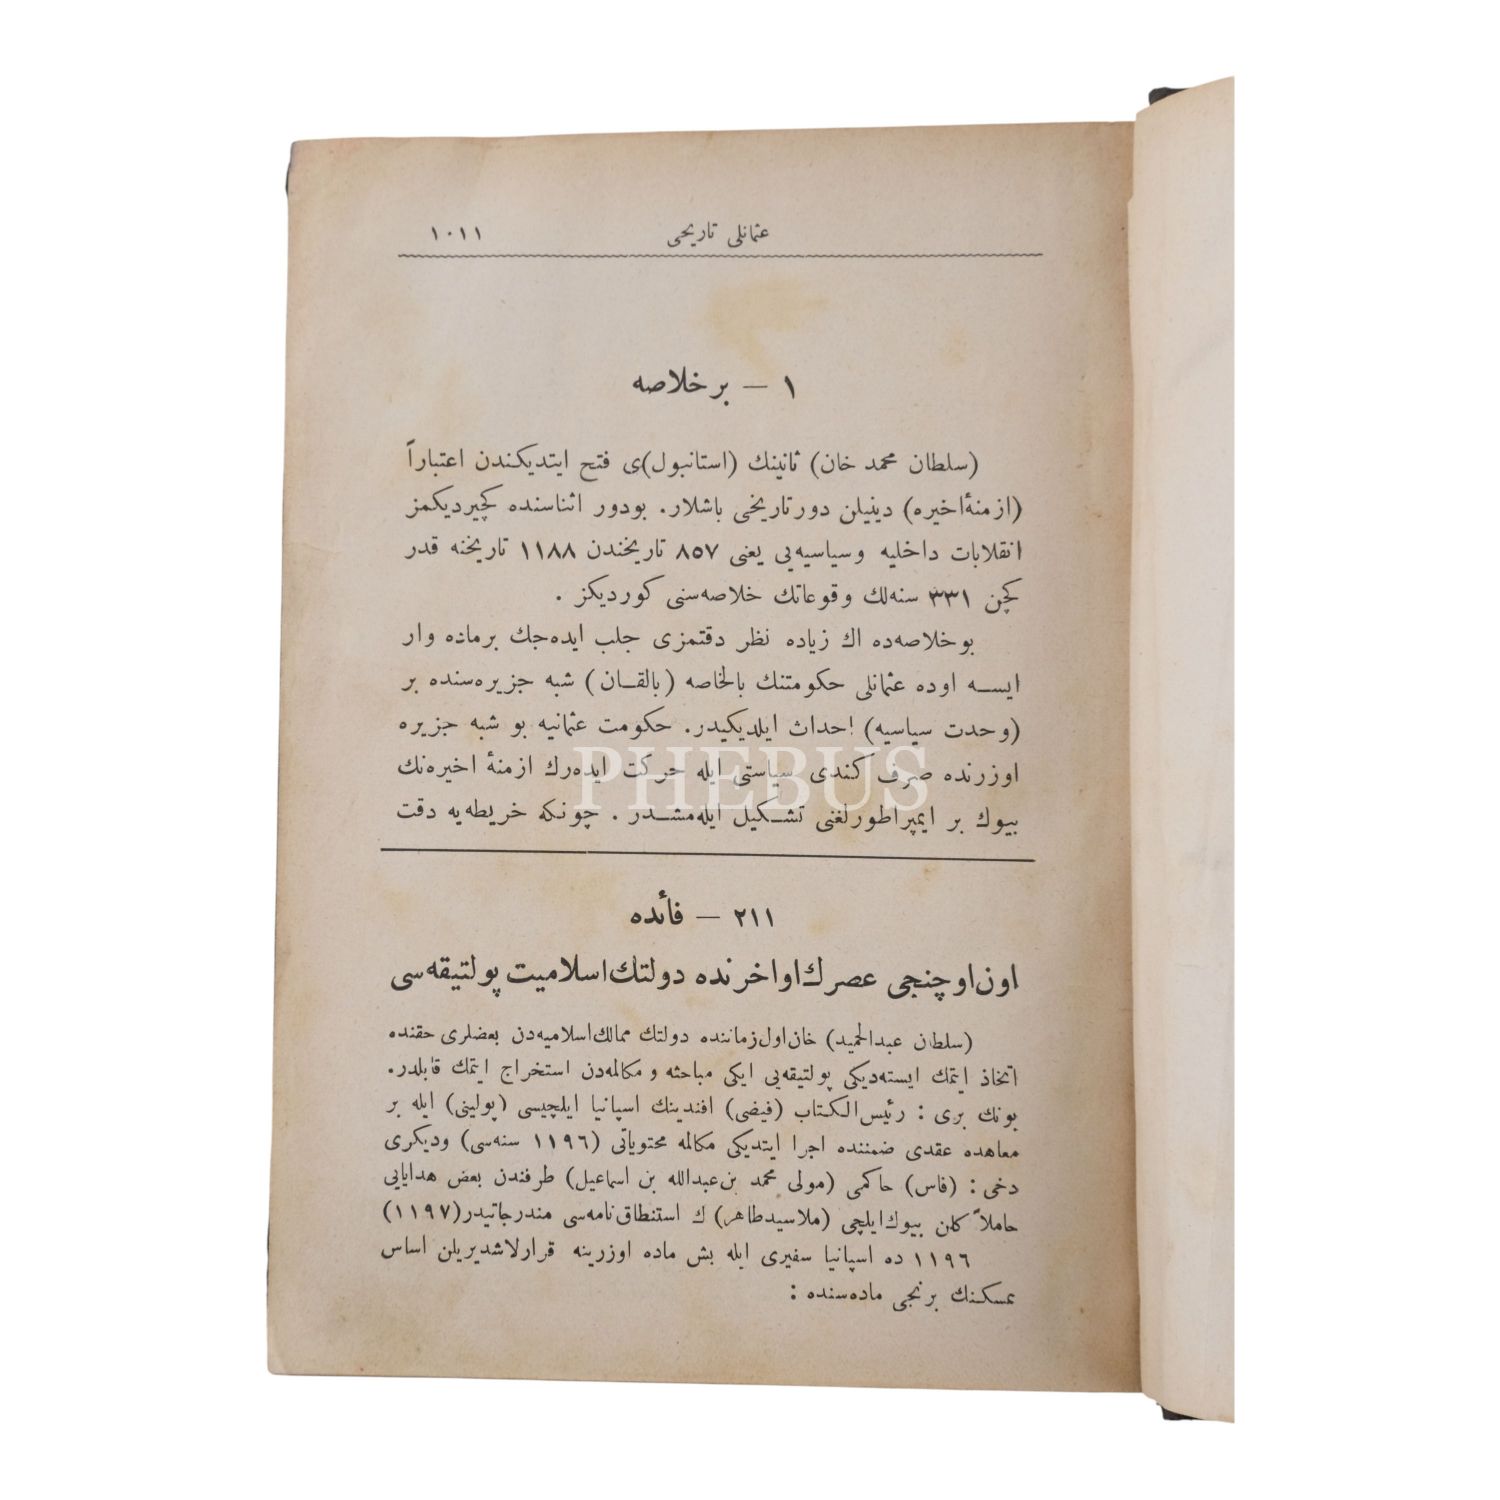 عثمانلی تاریخی ١٠١١
١ — بر خلاصه
(سلطان محمد خان) ثانینك (استانبول)ی فتح ایتدیكندن اعتباراً
(ازمنهٔ اخیره) دینیلن دور تاریخی باشلار. بو دور اثناسنده كچیردیكمز
انقلابات داخلیه و سیاسیه یی یعنی ٨٥٧ تاریخندن ١١٨٨ تاریخنه قدر
كچن ٣٣١ سنه لك وقوعاتك خلاصه سنی كوردیكز .
بو خلاصه ده اك زیاده نظر دقتمزی جلب ایده جك بر ماده وار
ایسه اوده عثمانلی حكومتنك بالخاصه (بالقان) شبه جزیره سنده بر
(وحدت سیاسیه) احداث ایلدیكیدر. حكومت عثمانیه بو شبه جزیره
اوزرنده صرف كندی سیاستی ایله حركت ایده رك ازمنهٔ اخیره نك
بیوك بر ایمپراطورلغنی تشكیل ایله مشدر . چونكه خریطه یه دقت
٢١١ — فائده
اون اوچنجی عصرك اواخرنده دولتك اسلامیت پولتیقه سی
(سلطان عبدالحمید) خان اول زماننده دولتك ممالك اسلامیه دن بعضلری حقنده
اتخاذ ایتمك ایسته دیكی پولتیقه یی ایكی مباحثه و مكالمه دن استخراج ایتمك قابلدر.
بونك بری : رئیس الكتاب (فیضی) افندینك اسپانیا ایلچیسی (پولینی) ایله بر
معاهده عقدی ضمننده اجرا ایتدیكی مكالمه محتویاتی (١١٩٦ سنه سی) ودیكری
دخی : (فاس) حاكمی (مولی محمد بن عبدالله بن اسماعیل) طرفندن بعض هدایایی
حاملاً كلن بیوك ایلچی (ملا سید طاهر) ك استنطاق نامه سی مندرجاتیدر (١١٩٧)
١١٩٦ ده اسپانیا سفیری ایله بش ماده اوزرینه قرارلاشدیریلن اساس
عسكنك برنجی ماده سنده :
PHEBUS